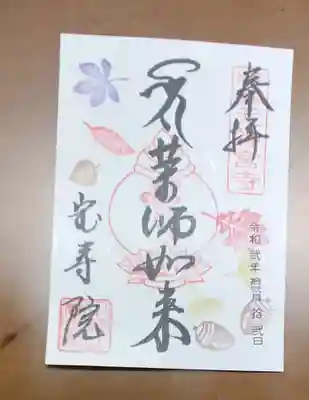 奉拝
令和弐年拾月拾弐日
薬師如来
宝寿院